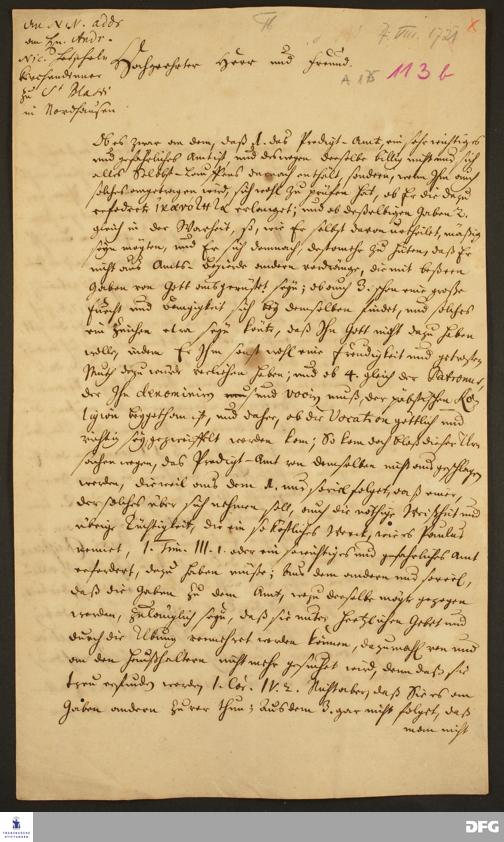 An N.N. adds
an Hn. Andr.
Nic.
Kirchendiener
zu St Blasii
in Nordhausen
7. VIII. 1721
A 175
113 b
Hochgeehrter Herr und Freund.
Ob es zwar an dem, daß 1. das Predigt-Amt, ein sehr wichtiges
und gefährliches Amt ist, und deswegen derselbe billig nicht nur sich
alles enthält, sondern, wenn Ihm auch
solches angetragen wird, sich wohl zu prüfen hat, ob Er die dazu
erforderte ἱκανότητα erlanget; und ob desselbigen Gaben 2.
gleich in der Warheit, so, wie Er selbst davon urtheilet, mäßig
seyn mögten, und Er sich demnach zu hüten, daß Er
nicht aus Amts-Begierde andern vordringe, die mit beßeren
Gaben von Gott ausgerüstet seyn; ob auch 3. schon eine große
Furcht und sich bey demselben findet, und solches
ein Zeichen etwa seyn könte, daß Ihn Gott nicht dazu haben
wolle, indem Er Ihm sonst wohl eine Freudigkeit und getrosten
Muth dazu würde verliehen haben; und ob 4. gleich der Patronus,
der Ihn denominiren und vociren muß, der päbstischen Re-
ligion beygethan ist, und daher, ob die Vocation göttlich und
richtig sey, gezweiffelt werden kan; So kan doch bloß dieser Ur-
sachen wegen, das Predigt-Amt von demselben nicht ausgeschlagen
werden, dieweil aus dem 1. nur soviel folget, daß einer,
der solches über sich nehmen soll, auch die nöthige Weisheit und
übrige Tüchtigkeit, die ein so köstliches Werck, wie es Paulus
nennet, 1. Tim. III. 1. oder ein so wichtiges und gefährliches Amt
erfordert, dazu haben müße; aus dem andern nur soviel,
daß die Gaben zu dem Amt, wozu derselbe mögte gezogen
werden, zulänglich seyn, daß sie unter hertzlichen Gebet und
durch die Übung vermehret werden können, dazumahl von und
an den Haushaltern nicht mehr gesuchet wird, denn daß sie
treu erfunden werden 1. Cor. IV. 2. Nicht aber, daß Sie es an
Gaben andern zuvor thun; Aus dem 3. gar nicht folget, daß
man nicht
FRANCKESCHE STIFTUNGEN
DFG